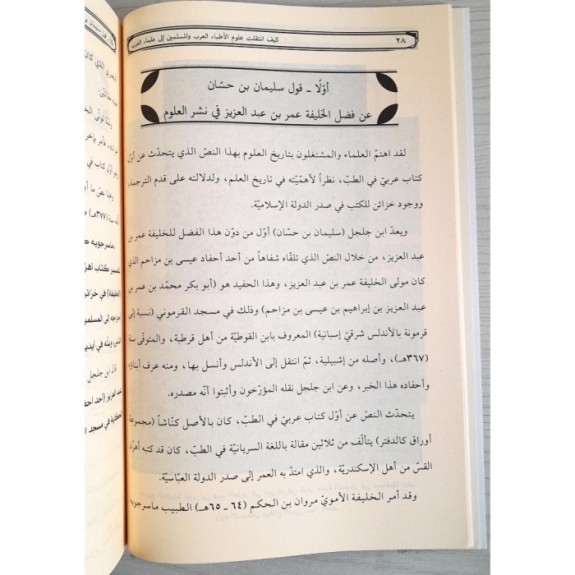 ٢٨
كيف انتقلت علوم الأطباء العرب والمسلمين إلى علماء الغرب
أوّلًا ـ قول سليمان بن حسّان
عن فضل الخليفة عمر بن عبد العزيز في نشر العلوم
لقد اهتمّ العلماء والمشتغلون بتاريخ العلوم بهذا النصّ الذي يتحدّث عن أوّل
كتاب عربيّ في الطبّ، نظراً لأهمّيّته في تاريخ العلم، ولدلالته على قدم الترجمة،
ووجود خزائن للكتب في صدر الدولة الإسلاميّة.
ويعدّ ابن جلجل (سليمان بن حسّان) أوّل من دوّن هذا الفضل للخليفة عمر بن
عبد العزيز، من خلال النصّ الذي تلقّاه شفاهاً من أحد أحفاد عيسى بن مزاحم الذي
كان مولى الخليفة عمر بن عبد العزيز، وهذا الحفيد هو (أبو بكر محمّد بن عمر بن
عبد العزيز بن إبراهيم بن عيسى بن مزاحم) وذلك في مسجد القرموني (نسبة إلى
قرمونة بالأندلس شرقيّ إسبانية) المعروف بابن القوطيّة من أهل قرطبة، والمتوفّى سنة
(٣٦٧هـ)، وأصله من إشبيلية، ثمّ انتقل إلى الأندلس وأنسل بها، ومنه عرف أبناؤه
وأحفاده هذا الخبر، وعن ابن جلجل نقله المؤرّخون وأثبتوا أنّه مصدره.
يتحدّث النصّ عن أوّل كتاب عربيّ في الطبّ، كان بالأصل كنّاشاً (مجموعة
أوراق كالدفتر) يتألّف من ثلاثين مقالة باللغة السريانيّة في الطبّ، كان قد كتبه أهرن
القسّ من أهل الإسكندريّة، والذي امتدّ به العمر إلى صدر الدولة العبّاسيّة.
وقد أمر الخليفة الأمويّ مروان بن الحكم (٦٤ ـ ٦٥هـ) الطبيب ماسرجويه